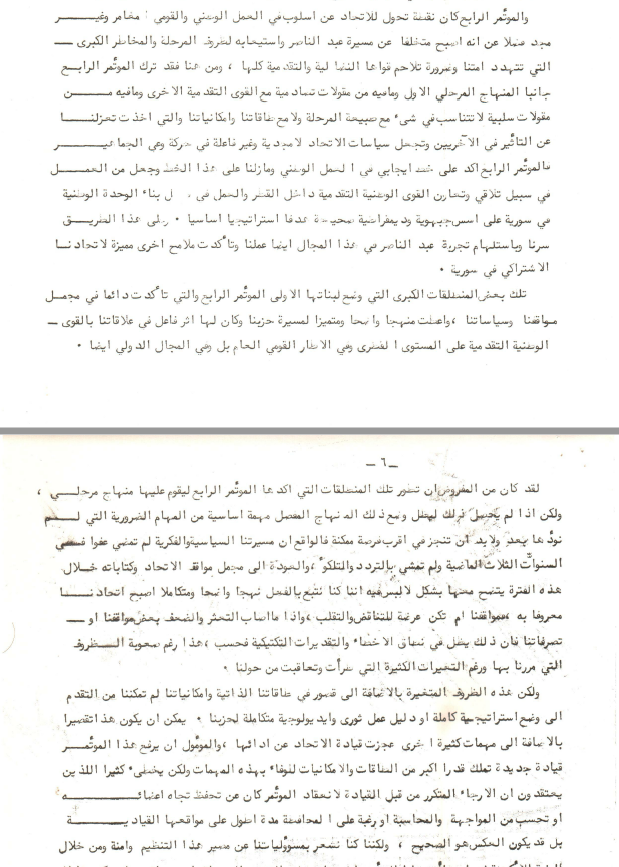 والموتمر الرابع كان نقطة تحول للاتحاد عن اسلوب في العمل الوطني والقومي : مغامر وغيـــر
مجد فضلا عن انه اصبح متخلفا عن مسيرة عبد الناصر واستيحابه لظروف المرحلة والمخاطر الكبرى ــ
التي تتهدد امتنا وضرورة تلاحم قواها النضالية والتقدمية كلها ، ومن هنا فقد ترك الموتمر الرابـــع
جانبا المنهاج المرحلي الاول ومافيه من مقولات تصادمية مع القوى التقدمية الاخرى ومافيه مـــــن
مقولات سلبية لا تتناسب في شيء مع طبيعة المرحلة ولا مع طاقاتنا وامكانياتنا والتي اخذت تعزلنـــا
عن التأثير في الآخريين وتجعل سياسات الاتحاد لا مجدية وغير فاعلة في حركة وعي الجماهيــــر
فالموتمر الرابع اكد على خط ايجابي في العمل الوطني ومازلنا على هذا الخط وجعل من العمـــــل
في سبيل تلاقي وتعاون القوى الوطنية التقدمية داخل القطر والعمل في بناء الوحدة الوطنية
في سورية على اسس جبهوية وديمقراطية صحيحة هدفا استراتيجيا اساسيا ٠ وعلى هذا الطريـــق
سرنا وباستلهام تجربة عبد الناصر في هذا المجال ايضا عملنا وتأكدت ملامح اخرى مميزة لاتحادنـــا
الاشتراكي في سورية ٠
تلك بعض المنطلقات الكبرى التي وضع لبناتها الاولى الموتمر الرابع والتي تأكدت دائما في مجمـل
مواقفنا وسياساتنا ،واعطت منهجا واضحا ومتميزا لمسيرة حزبنا وكان لها اثر فاعل في علاقاتنا بالقوى ــ
الوطنية التقدمية على المستوى القطرى وفي الاطار القومي العام بل وفي المجال الدولي ايضا ٠
ــ ٦ ــ
لقد كان من المفروض ان تتطور تلك المنطلقات التي اكدها الموتمر الرابع ليقوم عليها منهاج مرحلـــي ،
ولكن اذا لم يحصل ذلك ليظل وضع ذلك المنهاج المفصل مهمة اساسية من المهام الضرورية التي لـــم
نودها بعد ولابد أن تنجز في اقرب فرصة ممكنة فالواقع ان مسيرتنا السياسية والفكرية لم تمضي عفوا فـــي
السنوات الثلاث الماضية ولم تمشي بالتردد والتلكو ،والعودة الى مجمل مواقف الاتحاد وكتاباته خـــلال
هذه الفترة يتضح معها بشكل لالبس فيه اننا كنا نتبع بالفعل نهجا واضحا ومتكاملا اصبح اتحادنـــا
معروفا به ،فمواقفنا لم تكن عرضة للتناقض والتقلب ،واذا مااصاب التعثر والضعف بعض مواقفنا او ــ
تصرفاتنا فان ذلك يظل في نطاق الاخطاء والتقديرات التكتيكية فحسب ،هذا رغم صعوبة الظـــروف
التي مررنا بها ورغم التغيرات الكثيرة التي طرأت وتعاقبت من حولنا ٠
ولكن هذه الظروف المتغيرة بالاضافة الى قصور في طاقاتنا الذاتية وامكانياتنا لم تمكننا من التقدم
الى وضع استراتيجية كاملة او دليل عمل ثورى وايديولوجية متكاملة لحزبنا ٠ يمكن ان يكون هذا تقصيرا
بالاضافة الى مهمات كثيرة اخرى عجزت قيادة الاتحاد عن ادائها ،والمومول ان يرفع هذا الموتمـــر
قيادة جديدة تملك قدرا اكبر من الطاقات والامكانيات للوفاء بهذه المهمات ولكن يخطىء كثيرا اللذين
يعتقدون ان الارجاء المتكرر من قبل القيادة لانعقاد الموتمر كان عن تحفظ تجاه اعضائـــــــه
او تحسب من المواجهة والمحاسبة او رغبة على المحافظة مدة اطول على مواقعها القياديـــــة
بل قد يكون العكس هو الصحيح ، ولكننا كنا نشعر بمسؤولياتنا عن مصير هذا التنظيم وامنه ومن خلال